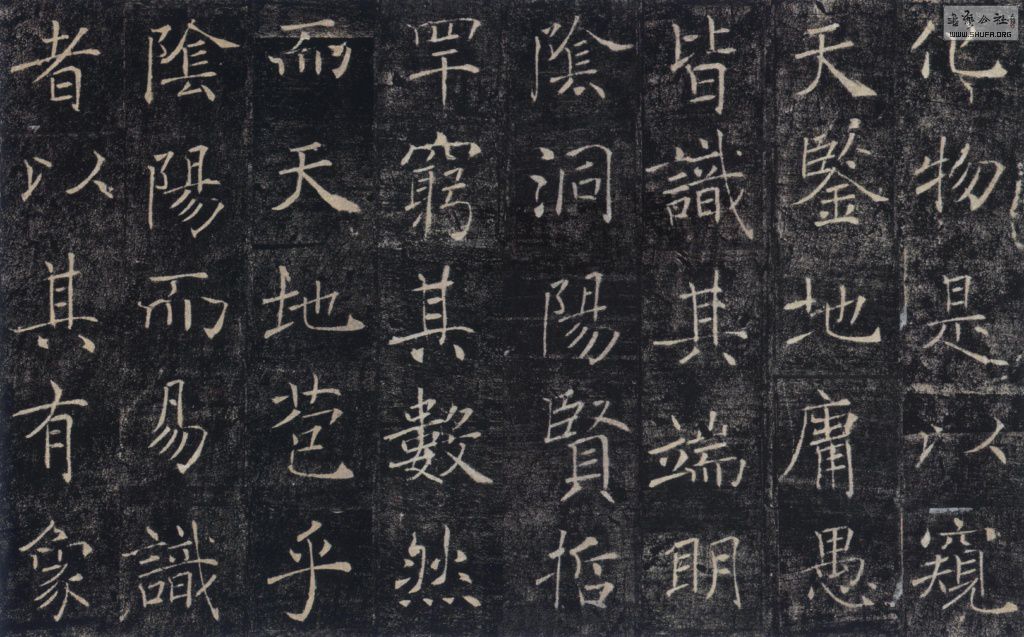 化物是以窺
天鑒地庸愚
皆識其端明
陰洞陽賢哲
罕窮其數然
而天地苞乎
陰陽而易識
者以其有象
WWW.SHUFA.ORG